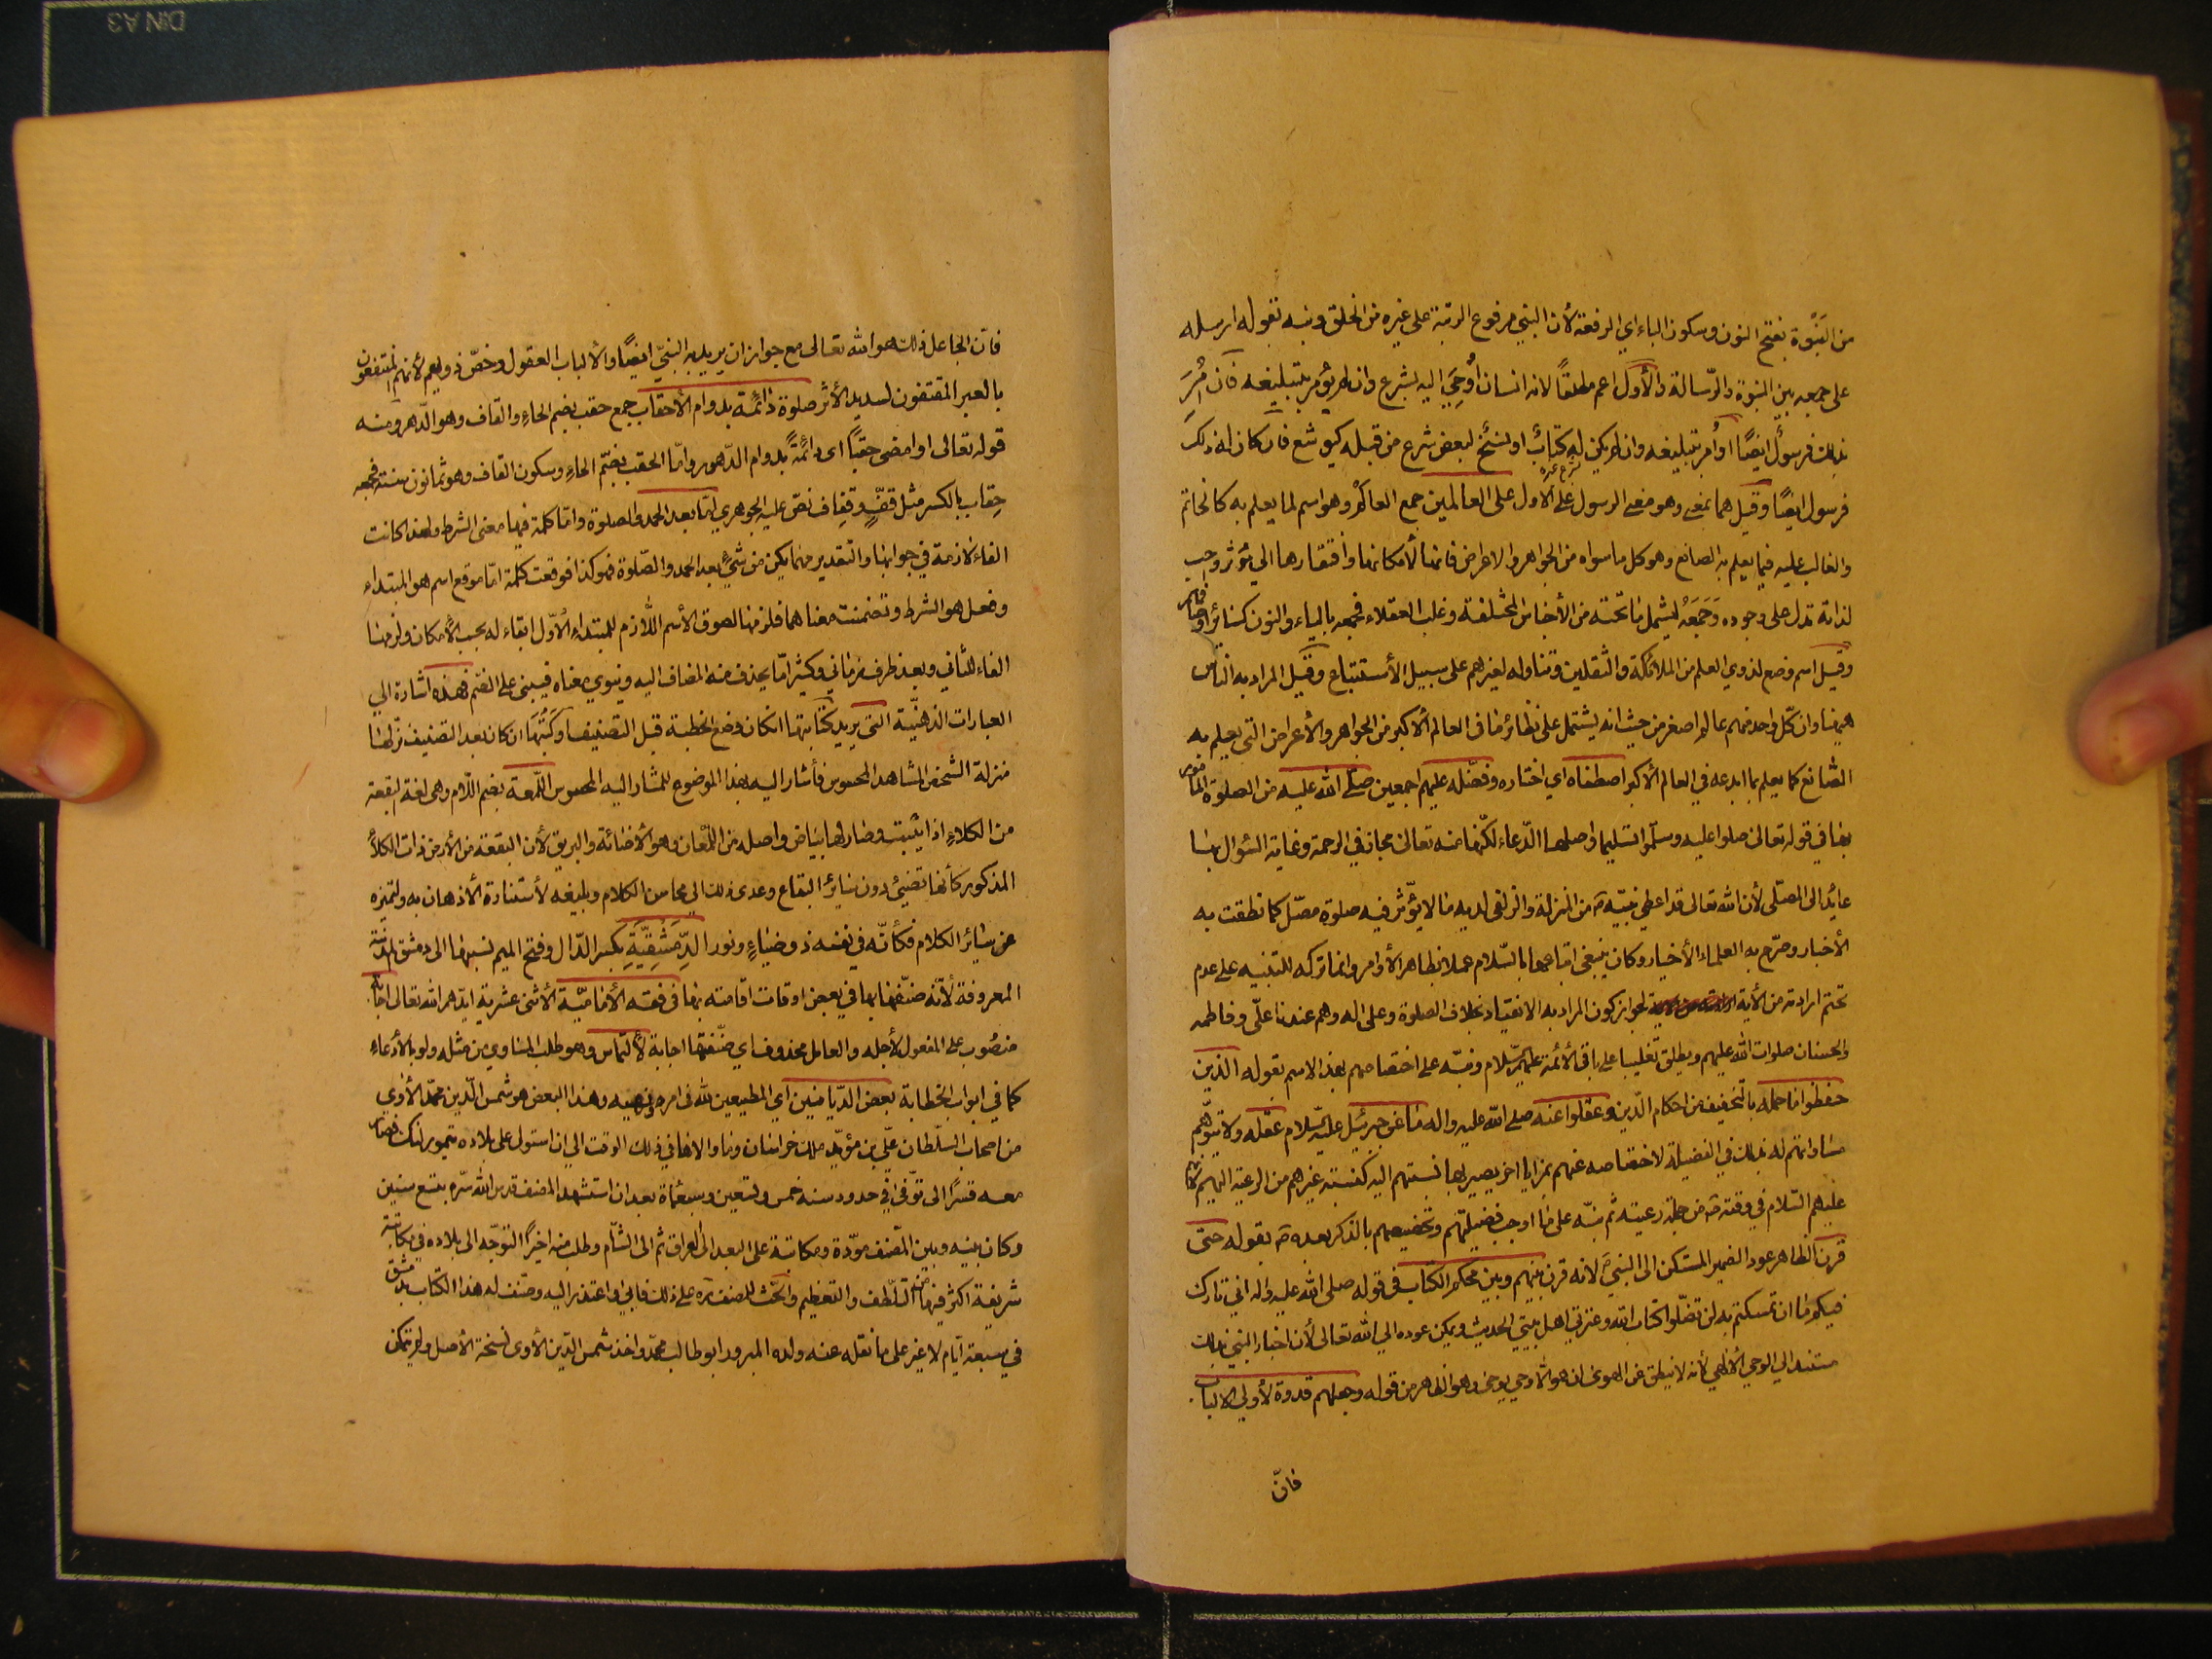 من النَبْوَة بفتح النون وسكون الباء اي الرفعة لأن النبي مرفوع الرتبة على غيره من الخلق ونبه بقوله ارسله
على جمعه بين النبوة والرّسالة والأول اعم مطلقاً لانه انسان اُوحِيَ اليه بشرع وان لم يؤمر بتبليغه فان اُمِرَ
بذلك فرسولٌ ايضًا او اُمر بتبليغه وان لم يكن له كتابٌ او نسخ لبعض شرع من قبله كيوشع فان كان له ذلك
فرسول ايضًا وقيل هما بمعنى وهو معنى الرسول على الاول على العالمين جمع العالم وهو اسم لما يعلم به كالخاتم
والغالب عليه فيما يعلم به الصانع وهو كل ما سواه من الجواهر والاعراض فانها لأمكانها وافتقارها الى مؤثر واجب
لذاته تدل على وجوده وَجَمَعَهُ ليشمل ما تحته من الأجناس المختلفة وغلب العقلاء فجمعه بالياء والنون كسائر اوصافهم
وقيل اسم وضع لذوي العلم من الملائكة والثقلين وتناوله لغيرهم على سبيل الأستتباع وقيل المراد به النّاس
ههنا وان كل واحد منهم عالم اصغر من حيث انه يشتمل على نظائر ما فى العالم الأكبر من الجواهر والأعراض التى يعلم به
الصّانع كما يعلم بما ابدعه في العالم الأكبر اصطفاه اي اختاره وفضّله عليهم اجمعين صلّى الله عليه من الصلوة المأمور
بها في قوله تعالى صلوا عليه وسلّموا تسليما واصلها الدّعاء لكنّها منه تعالى مجاز في الرحمة وغاية السّوال بها
عائد الى المصلّى لأن الله تعالى قد اعطى نبيّه من المنزلة والزلفى لديه ما لا يؤثر فيه صلوة مصلّ كما نطقت به
الأخبار وصرّح به العلماء الأخيار وكان ينبغي اتباعها بالسّلام عملا بظاهر الأمر وانما تركه للتنبيه على عدم
تحتم ارادته من الأية لجواز كون المراد به الانقياد بخلاف الصلوة وعلى اله وهم عندنا علّي وفاطمه
والحسنان صلوات الله عليهم ويطلق تغليبا على باقي الأئمة عليهم السّلام ونبّه على اختصاصهم بهذا الاسم بقوله الذين
حفظوا ما حمله بالتخفيف من احكام الدّين وعقلوا عنه صلى الله عليه واله ما عن جبرئيل عليه السّلام عقله ولا يتوهّم
مساواتهم له بذلك في الفضيلة لاختصاصه عنهم بمزايا اخر يصير بها نسبتهم اليه كنسبة غيرهم من الرعية اليهم لانهم
عليهم السّلام في وقته من جملة رعيته ثم نبّه على ما اوجب فضيلتهم وتخصيصهم بالذكر بعده بقوله حتى
قرن الظاهر عود الضمير المستكن الى النبي لانه قرن بينهم وبين محكم الكتاب في قوله صلى الله عليه واله اني تارك
فيكم ما ان تمسكتم به لن تضلّوا كتاب الله وعترتي اهل بيتي الحديث ويمكن عوده الى الله تعالى لأن اخبار النبي بذلك
مستند الى الوحي الألهي لأنه لا ينطق عن الهوى ان هو الّا وحي يوحى وهو الظاهر من قوله وجعلهم قدوة لأولي الالباب
فانّ
فانّ الجاعل ذلك هو الله تعالى مع جواز ان يريد به النبيّ ايضًا والألباب العقول وخصّ ذويهم لأنهم المنتفعون
بالعبر المقتفون لسديد الأثر صلوة دائمة بدوام الأحقاب جمع حقب بضم الحاءِ والقاف وهو الدّهر ومنه
قوله تعالى او امضي حقبًا اى دائمةً بدوام الدّهور وامّا الحقب بضمّ الحاءِ وسكون القاف وهو ثمانون سنة فجمعه
حِقاب بالكسر مثل قفّ وقفاف نصّ عليه الجوهري امّا بعد الحمد والصلوة وامّا كلمة فيها معنى الشرط ولهذا كانت
الفاء لازمة في جوابها والتقدير مهما يكن من شئٍ بعد الحمد والصّلوة فهو كذا فوقعت كلمة امّا موقع اسم هو المبتداء
وفعل هو الشرط وتضمنت معناهما فلزمها لصوق الأسم اللّازم للمبتداءِ الأوّل ابقاء له بحسب الأمكان ولزمها
الفاء للثاني وبعد ظرف زماني وكثيرًا ما يحذف منه المضاف اليه وينوي معناه فيبنى على الضم فهذه اشارة الى
العبارات الذهنيّة التى يريد كتابتها ان كان وضع الخطبة قبل التصنيف او كَتَبَها ان كان بعد التصنيف نزلها
منزلة الشخص المشاهد المحسوس فأشار اليه بهذا الموضوع للمشار اليه المحسوس اللّمعة بضم اللّام وهي لغة لبقعة
من الكلاءِ اذا يبست وصار لها بياض واصله من اللّمعان وهو الأضائة والبريق لأن البقعة من الأرض ذات الكلاءِ
المذكور كأنها تضيئ دون سائر البقاع وعدى ذلك الى محاسن الكلام وبليغه لأستنارة الأذهان به ولتميزه
عن سائر الكلام فكأنّه في نفسه ذو ضياءٍ ونور الدِّمَشْقِيَّةِ بكسر الدّال وفتح الميم نسبها الى دمشق المدينة
المعروفة لأنّه صنّفها بها في بعض اوقات اقامته بها في فقه الأماميّة الأثنى عشرية ايدهم الله تعالى اجابة
منصوب على المفعول لأجله والعامل محذوف اي صنّفتها اجابة لألتماس وهو طلب المساوي من مثله ولو بالأدعاءِ
كما في ابواب الخطابة بعض الدّيانيين اي المطيعين لله فى امره ونهيه وهذا البعض هو شمس الدّين محمّد الأوي
من اصحاب السّلطان علّي بن مؤيد ملك خراسان وما والاها في ذلك الوقت الى ان استولى على بلاده تيمور لنك فصار
معه قسرًا الى ان توفّي في حدود سنه خمس وتسعين وسبعماة بعد ان استشهد المصنف قدس الله سّره بتسع سنين
وكان بينه وبين المصنف مودّة ومكاتبة على البعد الى العراق ثم الى الشّام وطلب منه اخيرًا التوجّه الى بلاده في مكاتبة
شريفة اكثر فيها من التلطّف والتعظيم والحّث للمصنف ره على ذلك فابى واعتذر اليه وصنف له هذا الكتاب بدمشق
في سبعة أيّام لا غير على ما نقله عنه ولده المبرور ابو طالب محمّد واخذ شمس الدّين الأوى نسخة الأصل ولم يتمكن